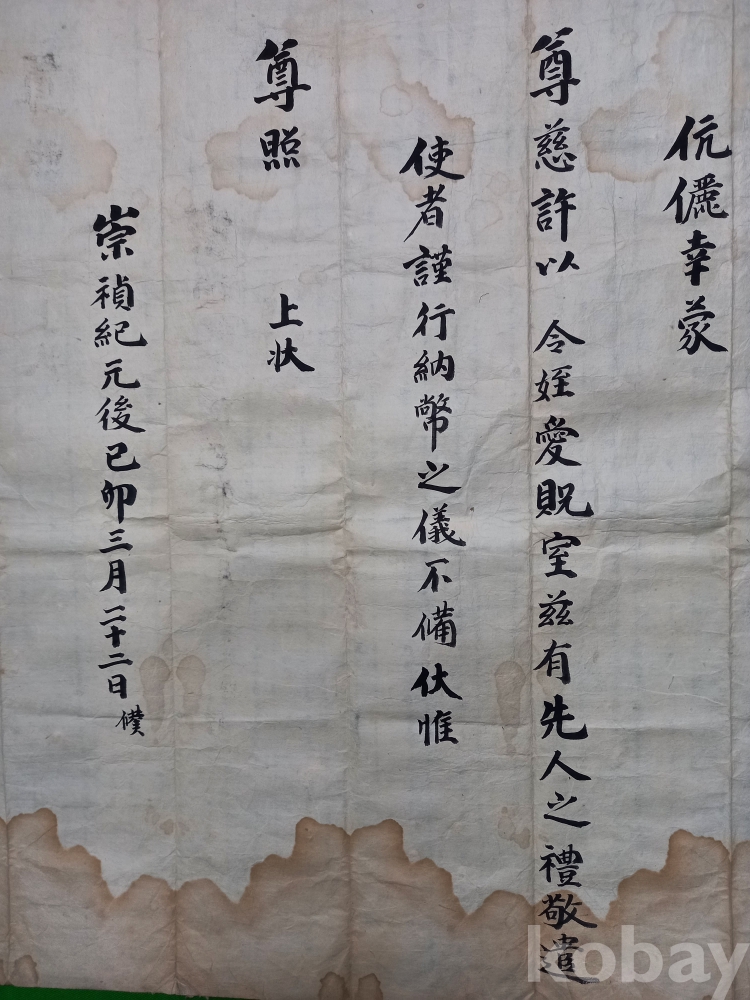 伉儷幸蒙
尊慈許以 令姪愛貺室茲有先人之禮敬遣
使者謹行納幣之儀不備伏惟
尊照 上狀
崇禎紀元後己卯三月二十二日
kobay